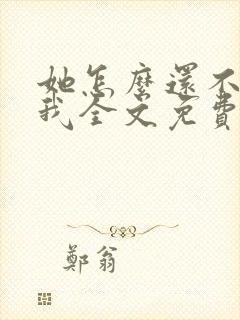 她怎麼還不
我全文免費
鄭翁